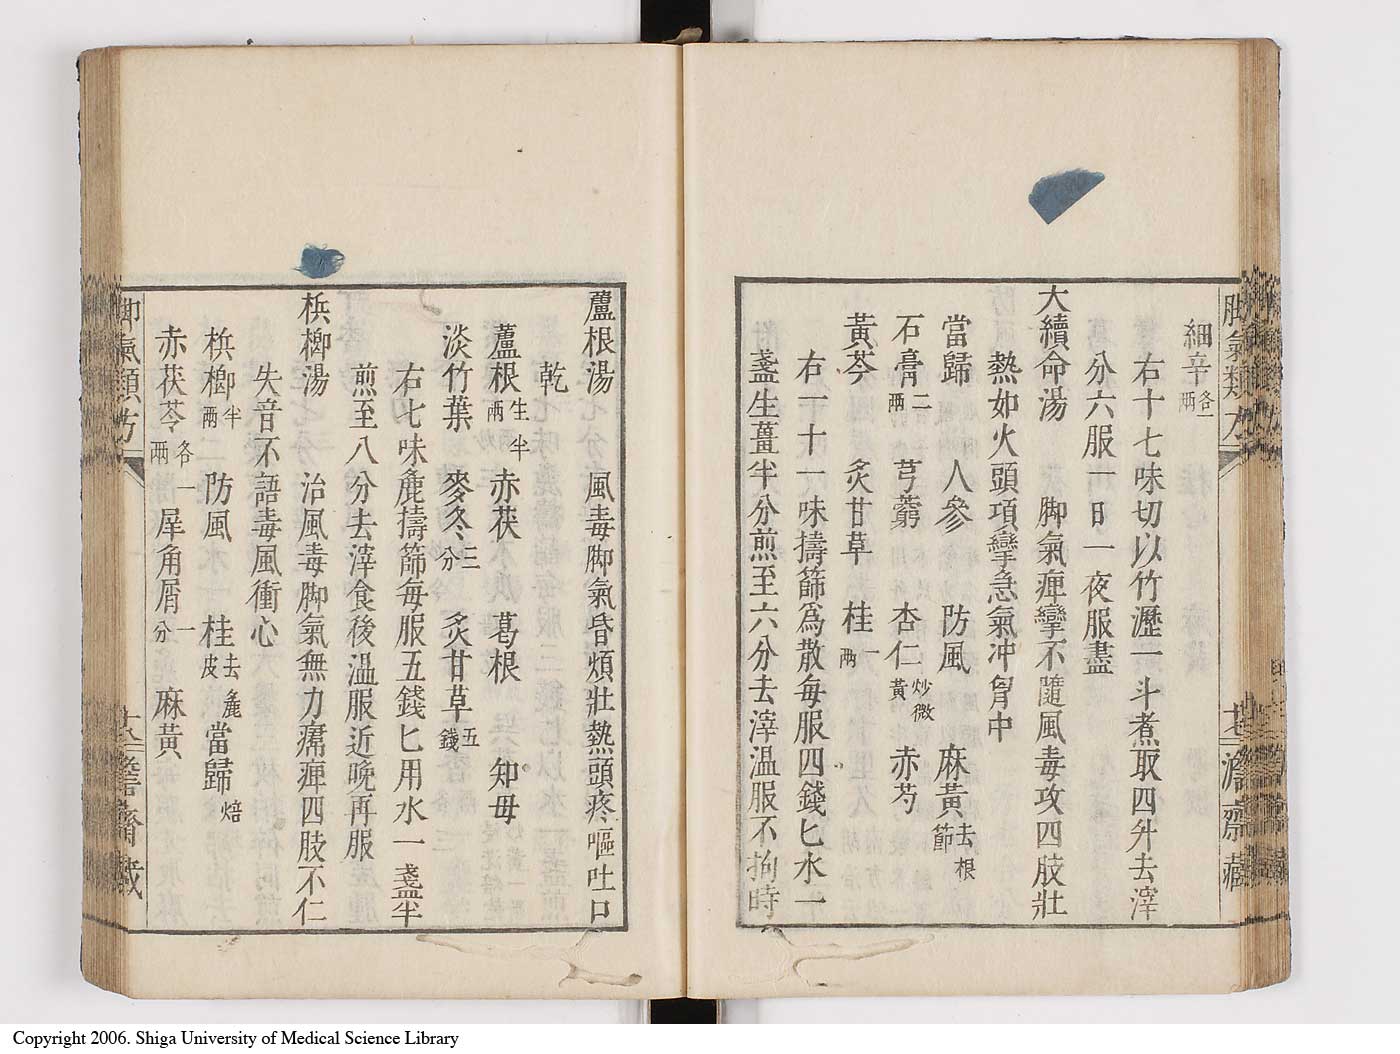 細辛各一兩
右十七味切以竹瀝一斗煮取四升去滓
分六服一日一夜服盡
大續命湯　脚氣痺攣不隨風毒攻四肢壯
熱如火頭項攣急氣冲胷中
當歸　人參　防風　麻黃去根節
石膏二兩　芎藭　杏仁炒微黃　赤芍
黃芩　炙甘草　桂一兩
右一十一味擣篩爲散每服四錢匕水一
盞生薑半分煎至六分去滓温服不拘時
蘆根湯　風毒脚氣昏煩壯熱頭疼嘔吐口
乾
蘆根生半兩　赤茯　葛根　知母
淡竹葉　麥冬三分　炙甘草五錢
右七味麁擣篩每服五錢匕用水一盞半
煎至八分去滓食後温服近晚再服
檳榔湯　治風毒脚氣無力痛痺四肢不仁
失音不語毒風衝心
檳榔半兩　防風　桂去麁皮　當歸焙
赤茯苓各一兩　犀角屑一分　麻黃
脚氣類方
澹齋藏
Copyright 2006. Shiga University of Medical Science Library